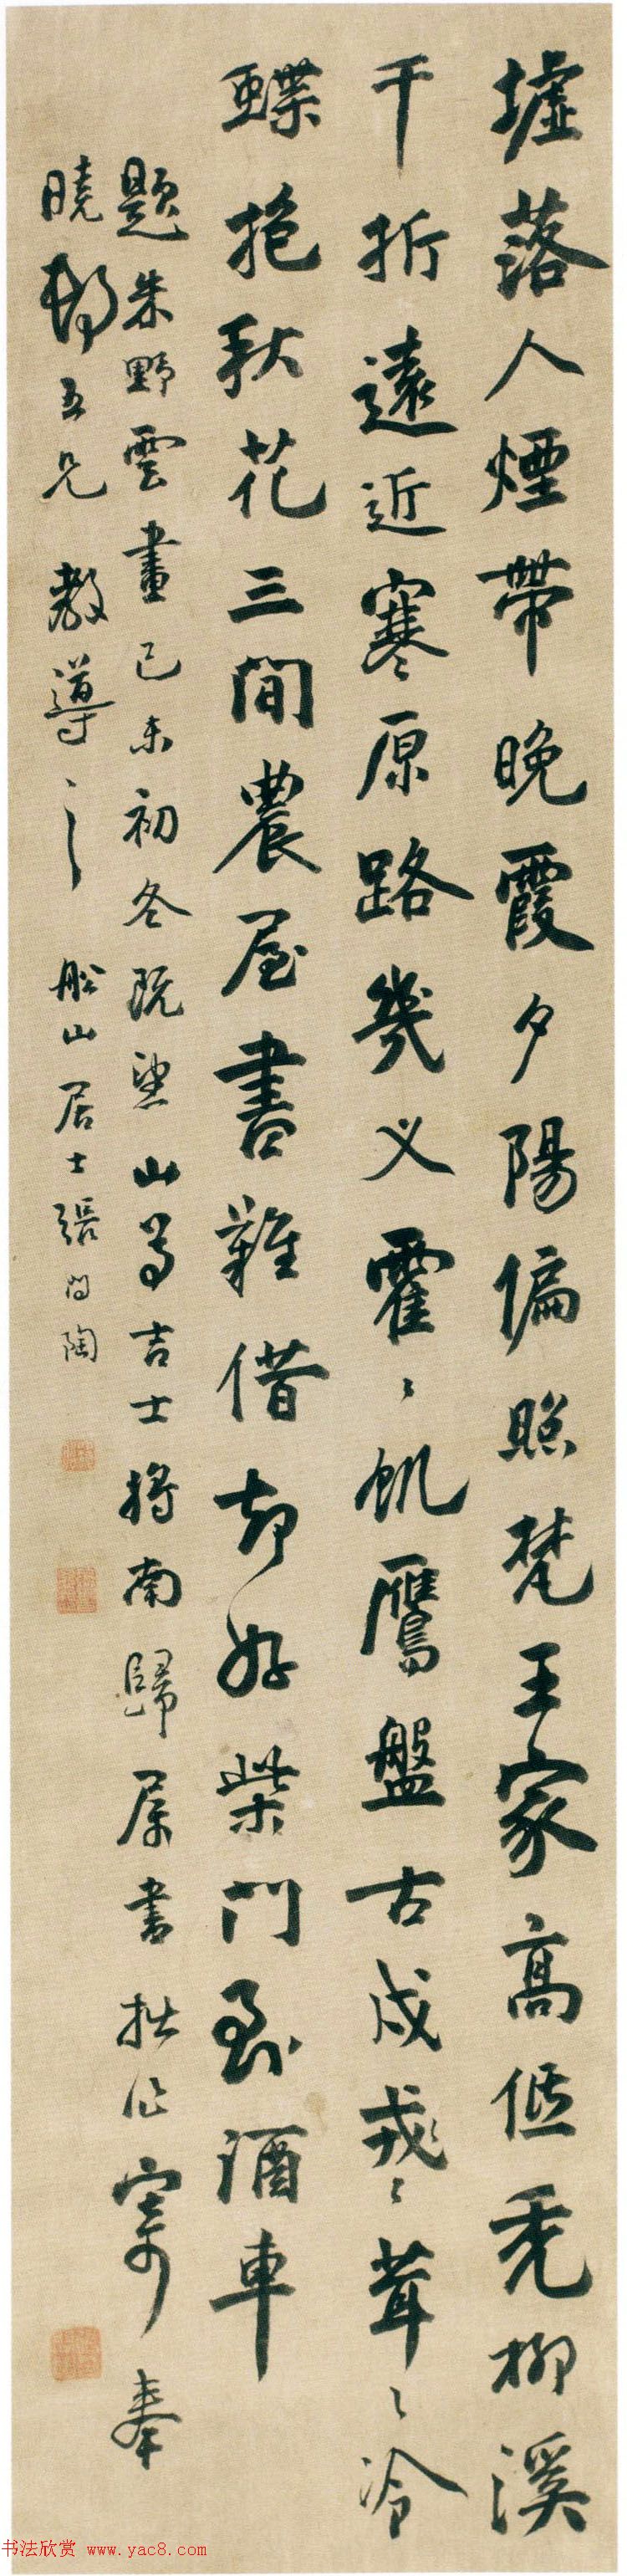 墟落人煙帶晚霞夕陽偏照梵王家高低禿柳溪
千折遠近寒原路幾叉霍〻飢鷹盤古戍戎〻茸〻冷
蝶抱秋花三間農屋書難借却好柴門到酒車
題朱野雲畫己未初冬既望山尊吉士將南歸屬書拙作寄奉
曉五兄教導之 船山居士張問陶
书法欣赏 www.yac8.com